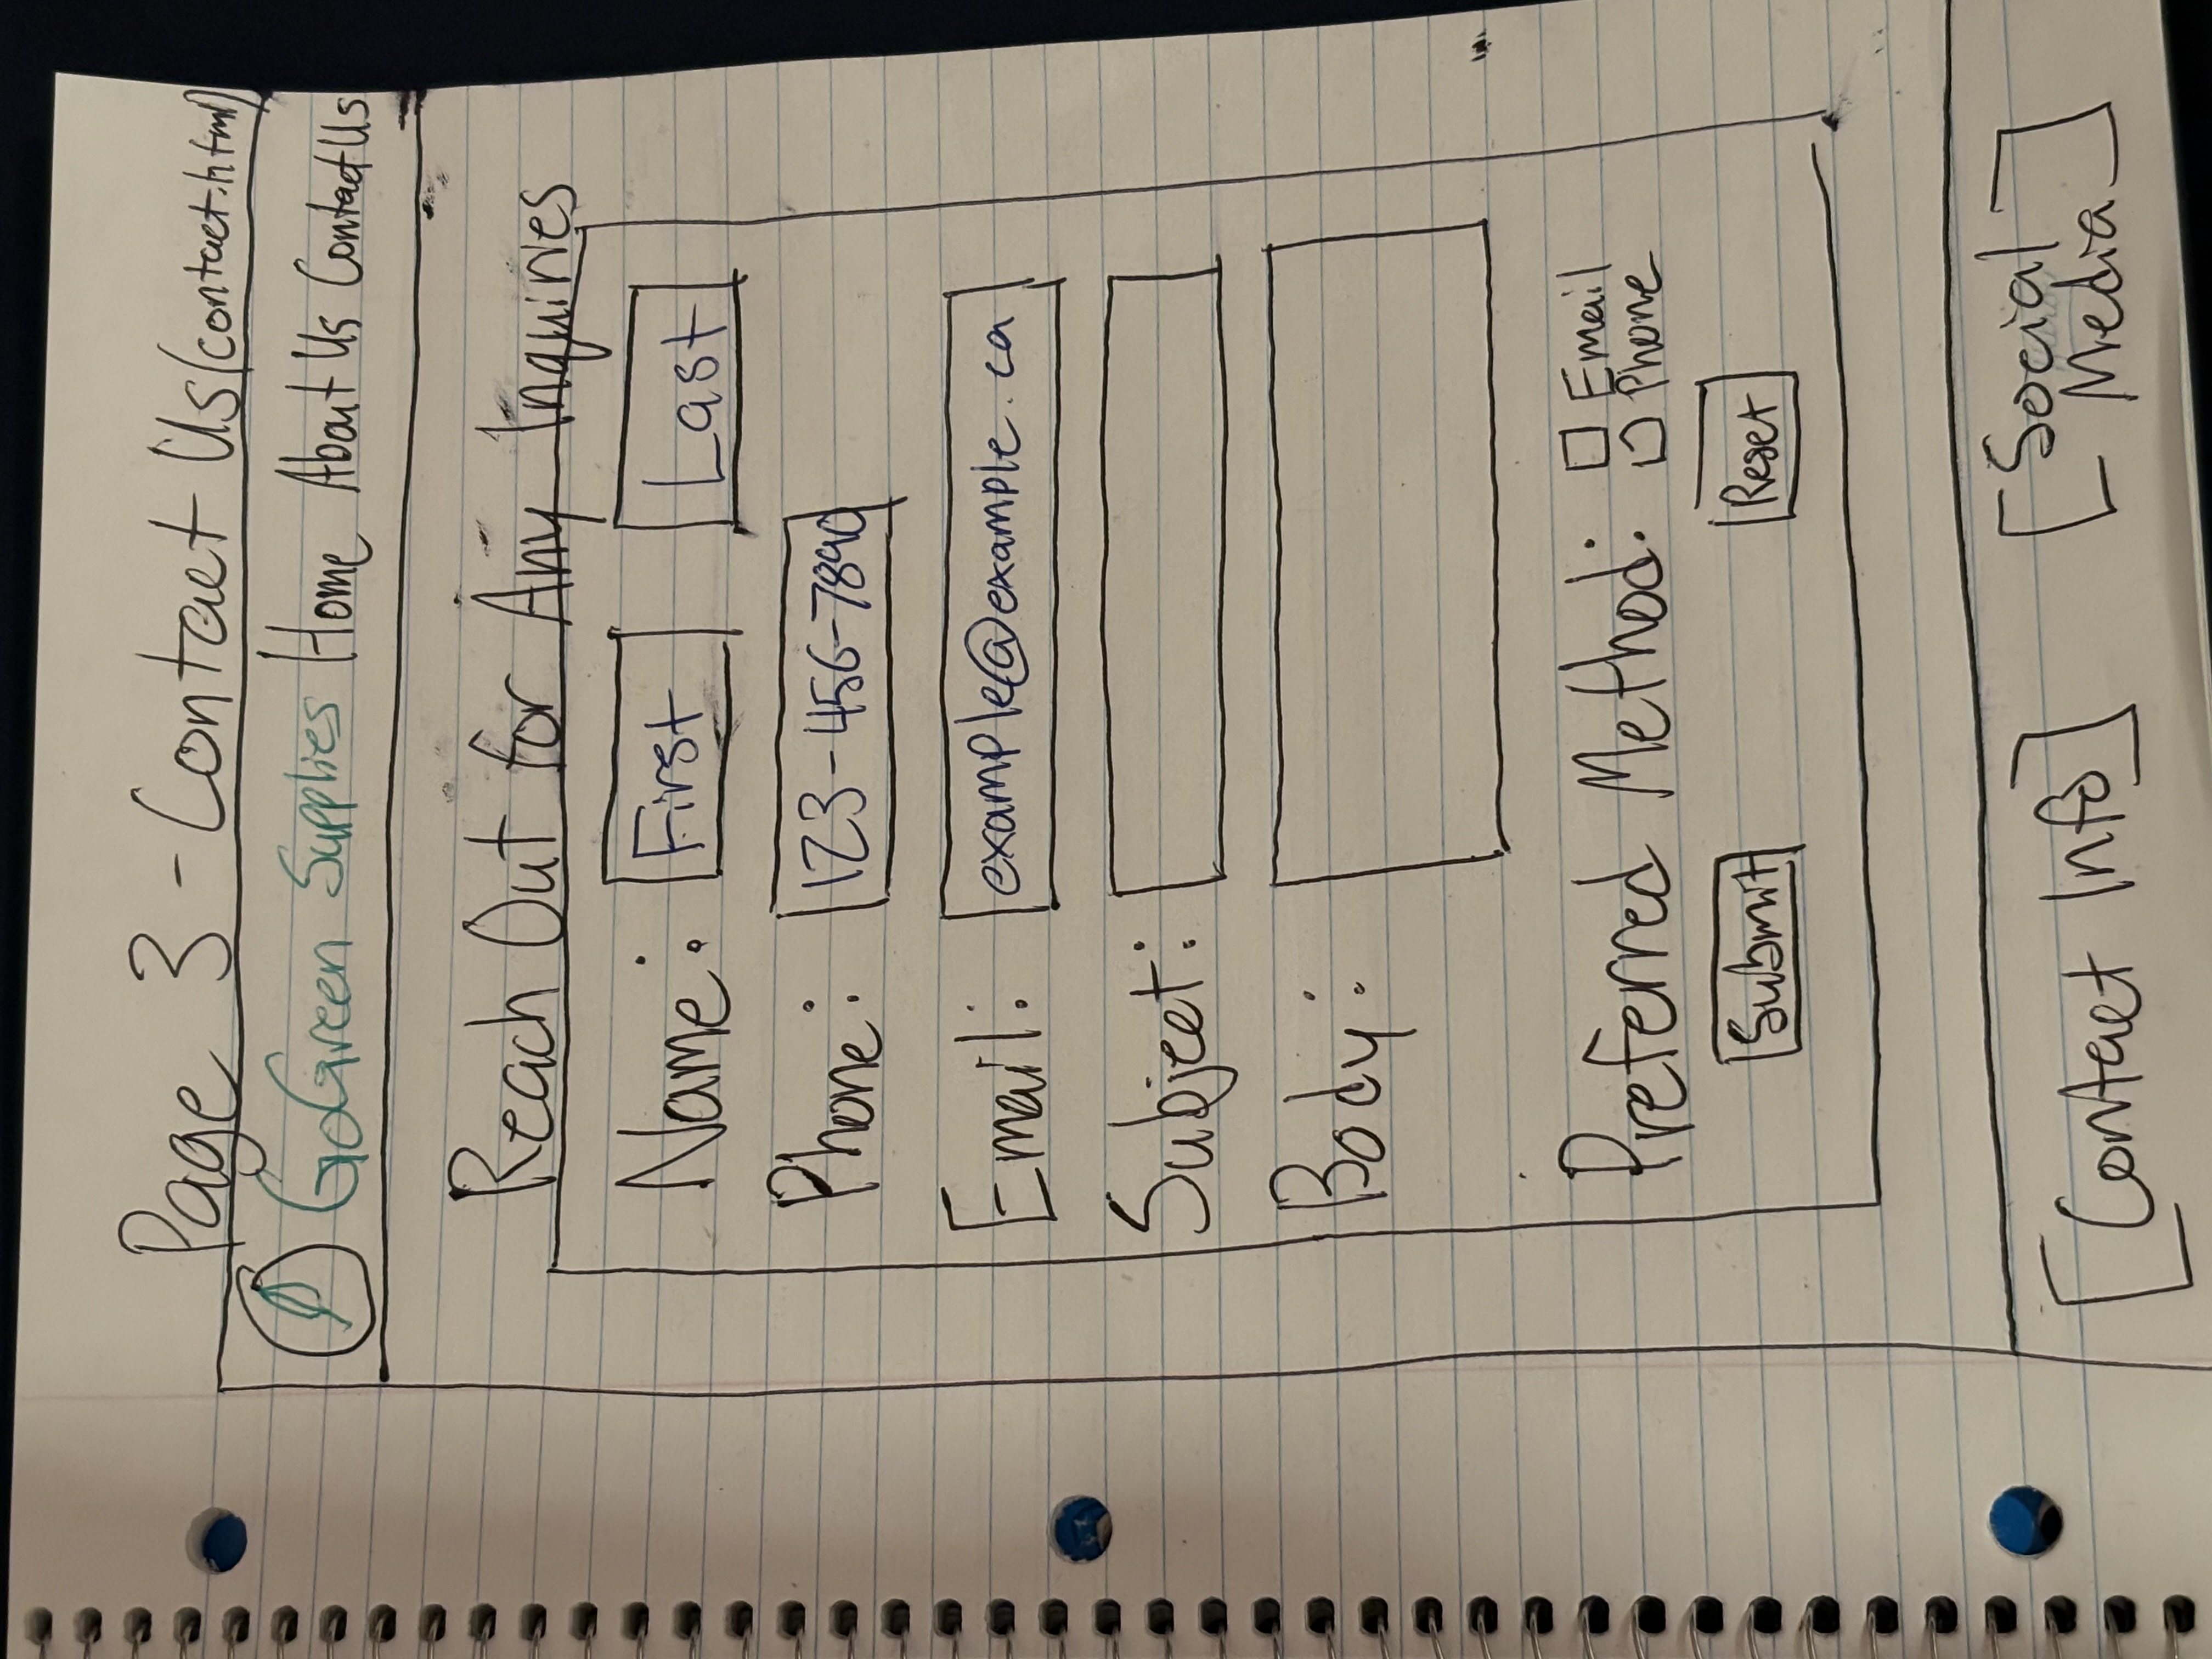 Page 3 - Contact Us (contact.html)
GoGreen Supplies Home About Us Contact Us
Reach Out for Any Inquiries
Name: First Last
Phone: 123-456-7890
Email: example@example.ca
Subject:
Body:
Preferred Method: Email
Phone
Submit Reset
[Contact Info] [Social
Media]